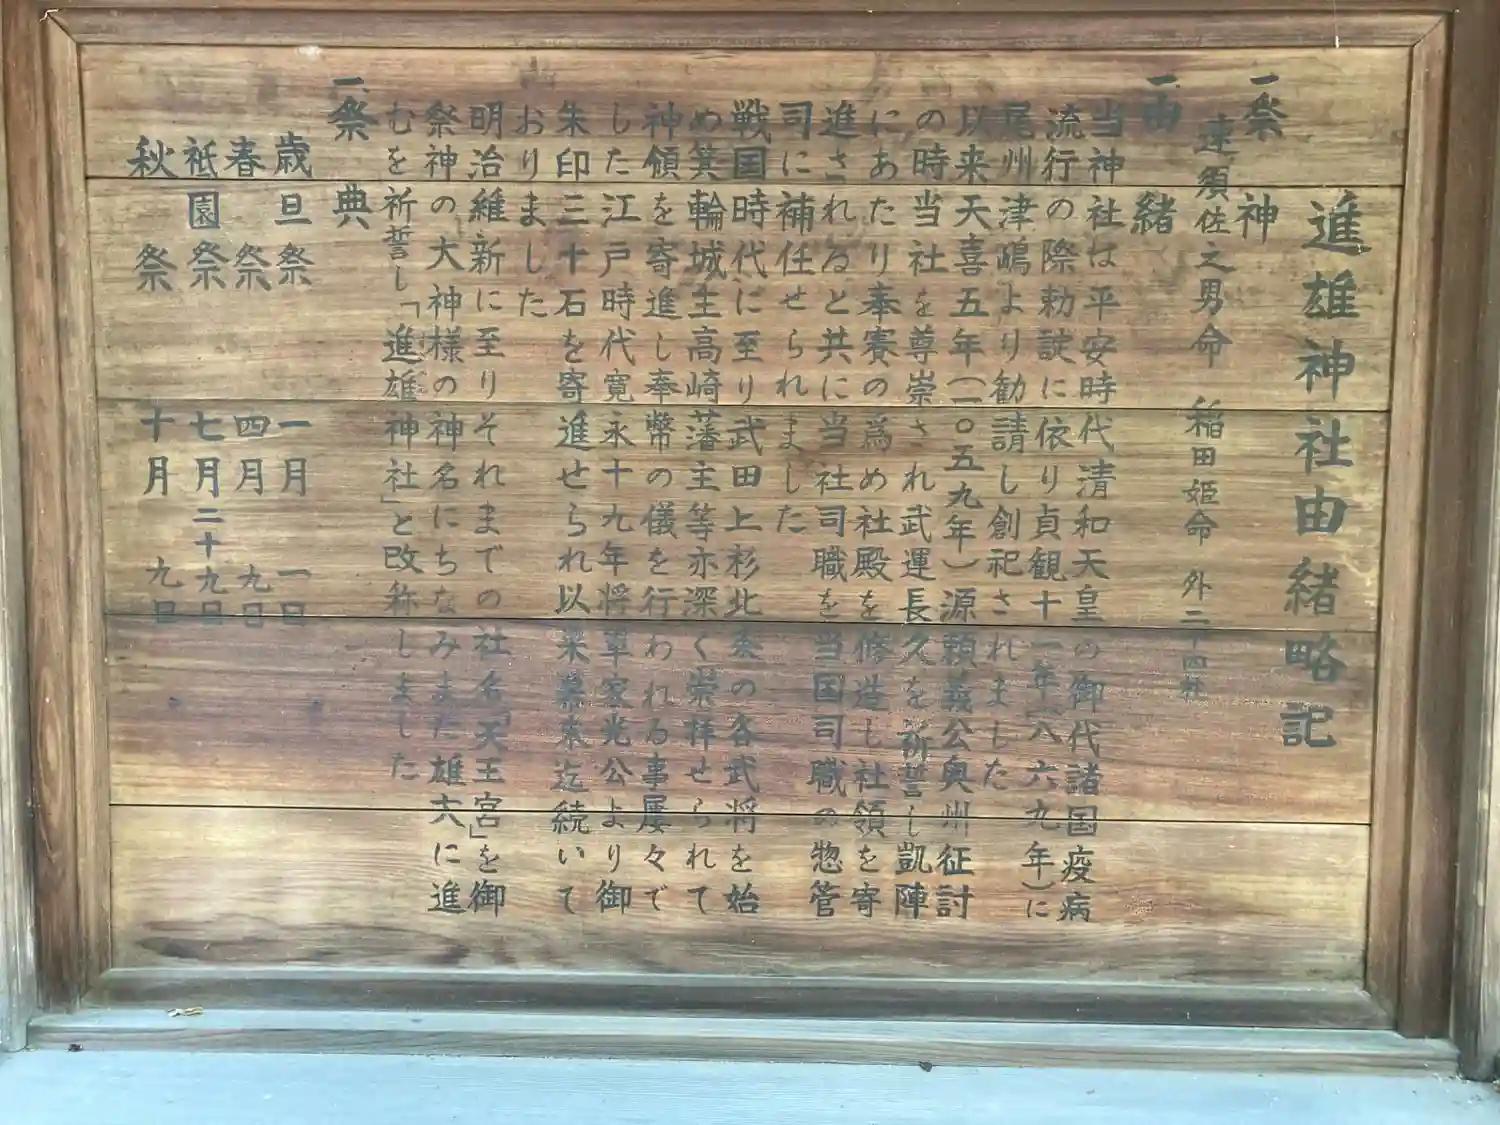 進雄神社由緒略記
一祭神
速須佐之男命 稲田姫命 外二十四柱
一由緒
当神社は平安時代清和天皇の御代諸国疫病
流行の際勅諚に依り貞観十一年(八六九年)に
尾州津嶋より勧請し創祀されました
以来天喜五年(一〇五九年)源頼義公奥州征討
の時当社を尊崇され武運長久を祈誓し凱陣
にあたり奉賽の為め社殿を修造し社領を寄
進されると共に当社司職を当国司職の惣管
司に補任せられました
戦国時代に至り武田上杉北条の各武将を始
め箕輪城主高崎藩主等亦深く崇拝せられて
神領を寄進し奉幣の儀を行われる事屡々で
した江戸時代寛永十九年将軍家光公より御
朱印三十石を寄進せられ以来幕末迄続いて
おりました
明治維新に至りそれまでの社名「天王宮」を御
祭神の大神様の神名にちなみまた雄大に進
むを祈誓し「進雄神社」と改称しました
一祭典
歳旦祭 一月一日
春祭 四月九日
祇園祭 七月二十九日
秋祭 十月九日